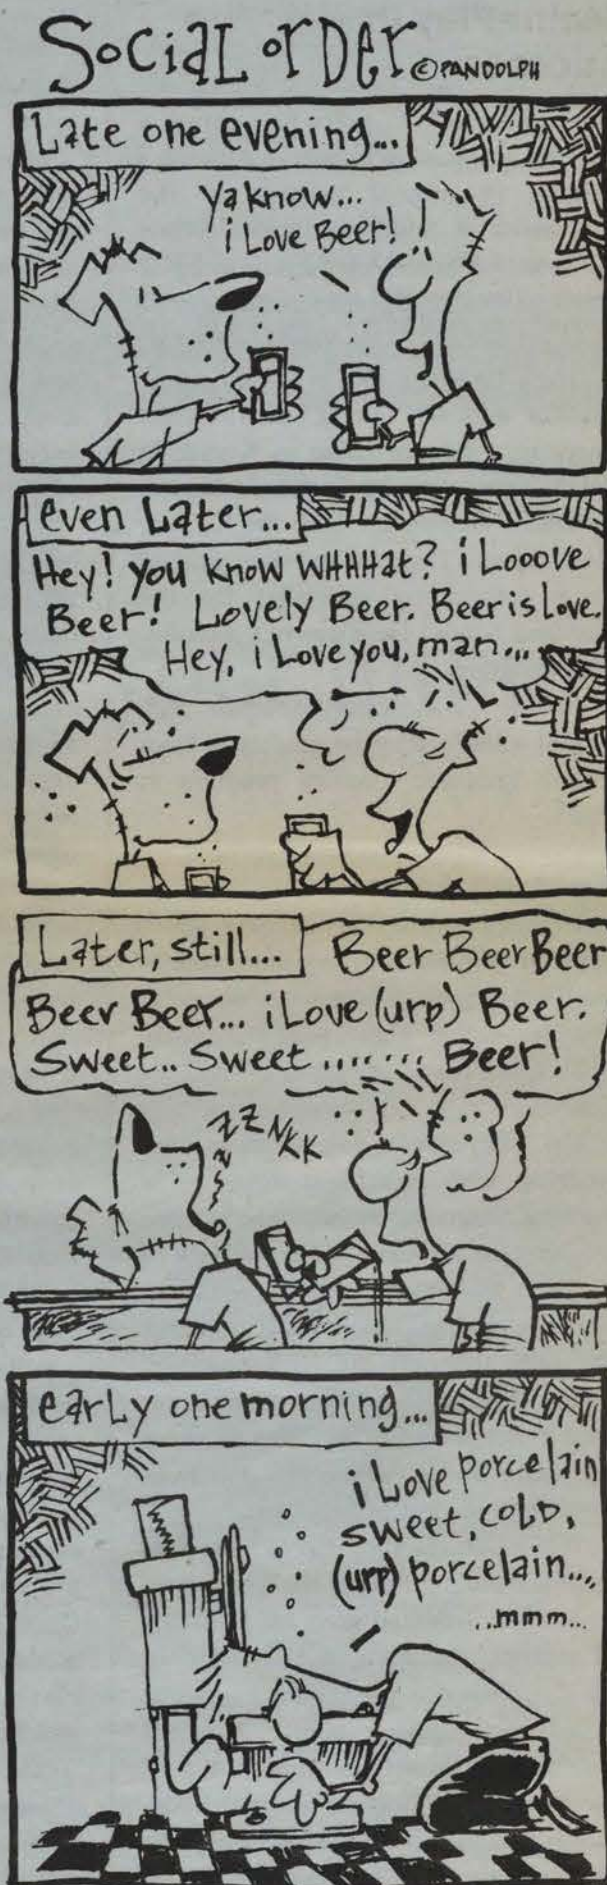 Social Order ©PANDOLPH
Late one evening...
Ya know...
i Love Beer!
even Later...
Hey! you know WHHHat? i Looove
Beer! Lovely Beer. Beer is Love.
Hey, i Love you, man...
Later, still...
Beer Beer Beer
Beer Beer... i Love (urp) Beer.
Sweet.. Sweet ....... Beer!
ZZNKK
early one morning...
i Love porcelain
sweet, COLD,
(urp) porcelain....
...mmm...